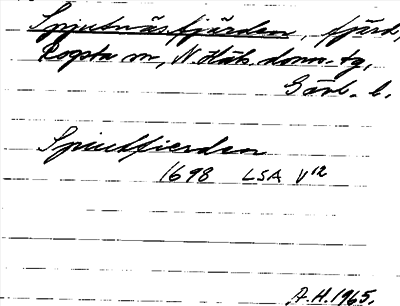 Spjutnäsfjärden, fjärd,
Rogsta sn, N. Häls. doms.-tg,
Gävl. l.
Spiutfierden
1698 LSA V12
A.H. 1965.